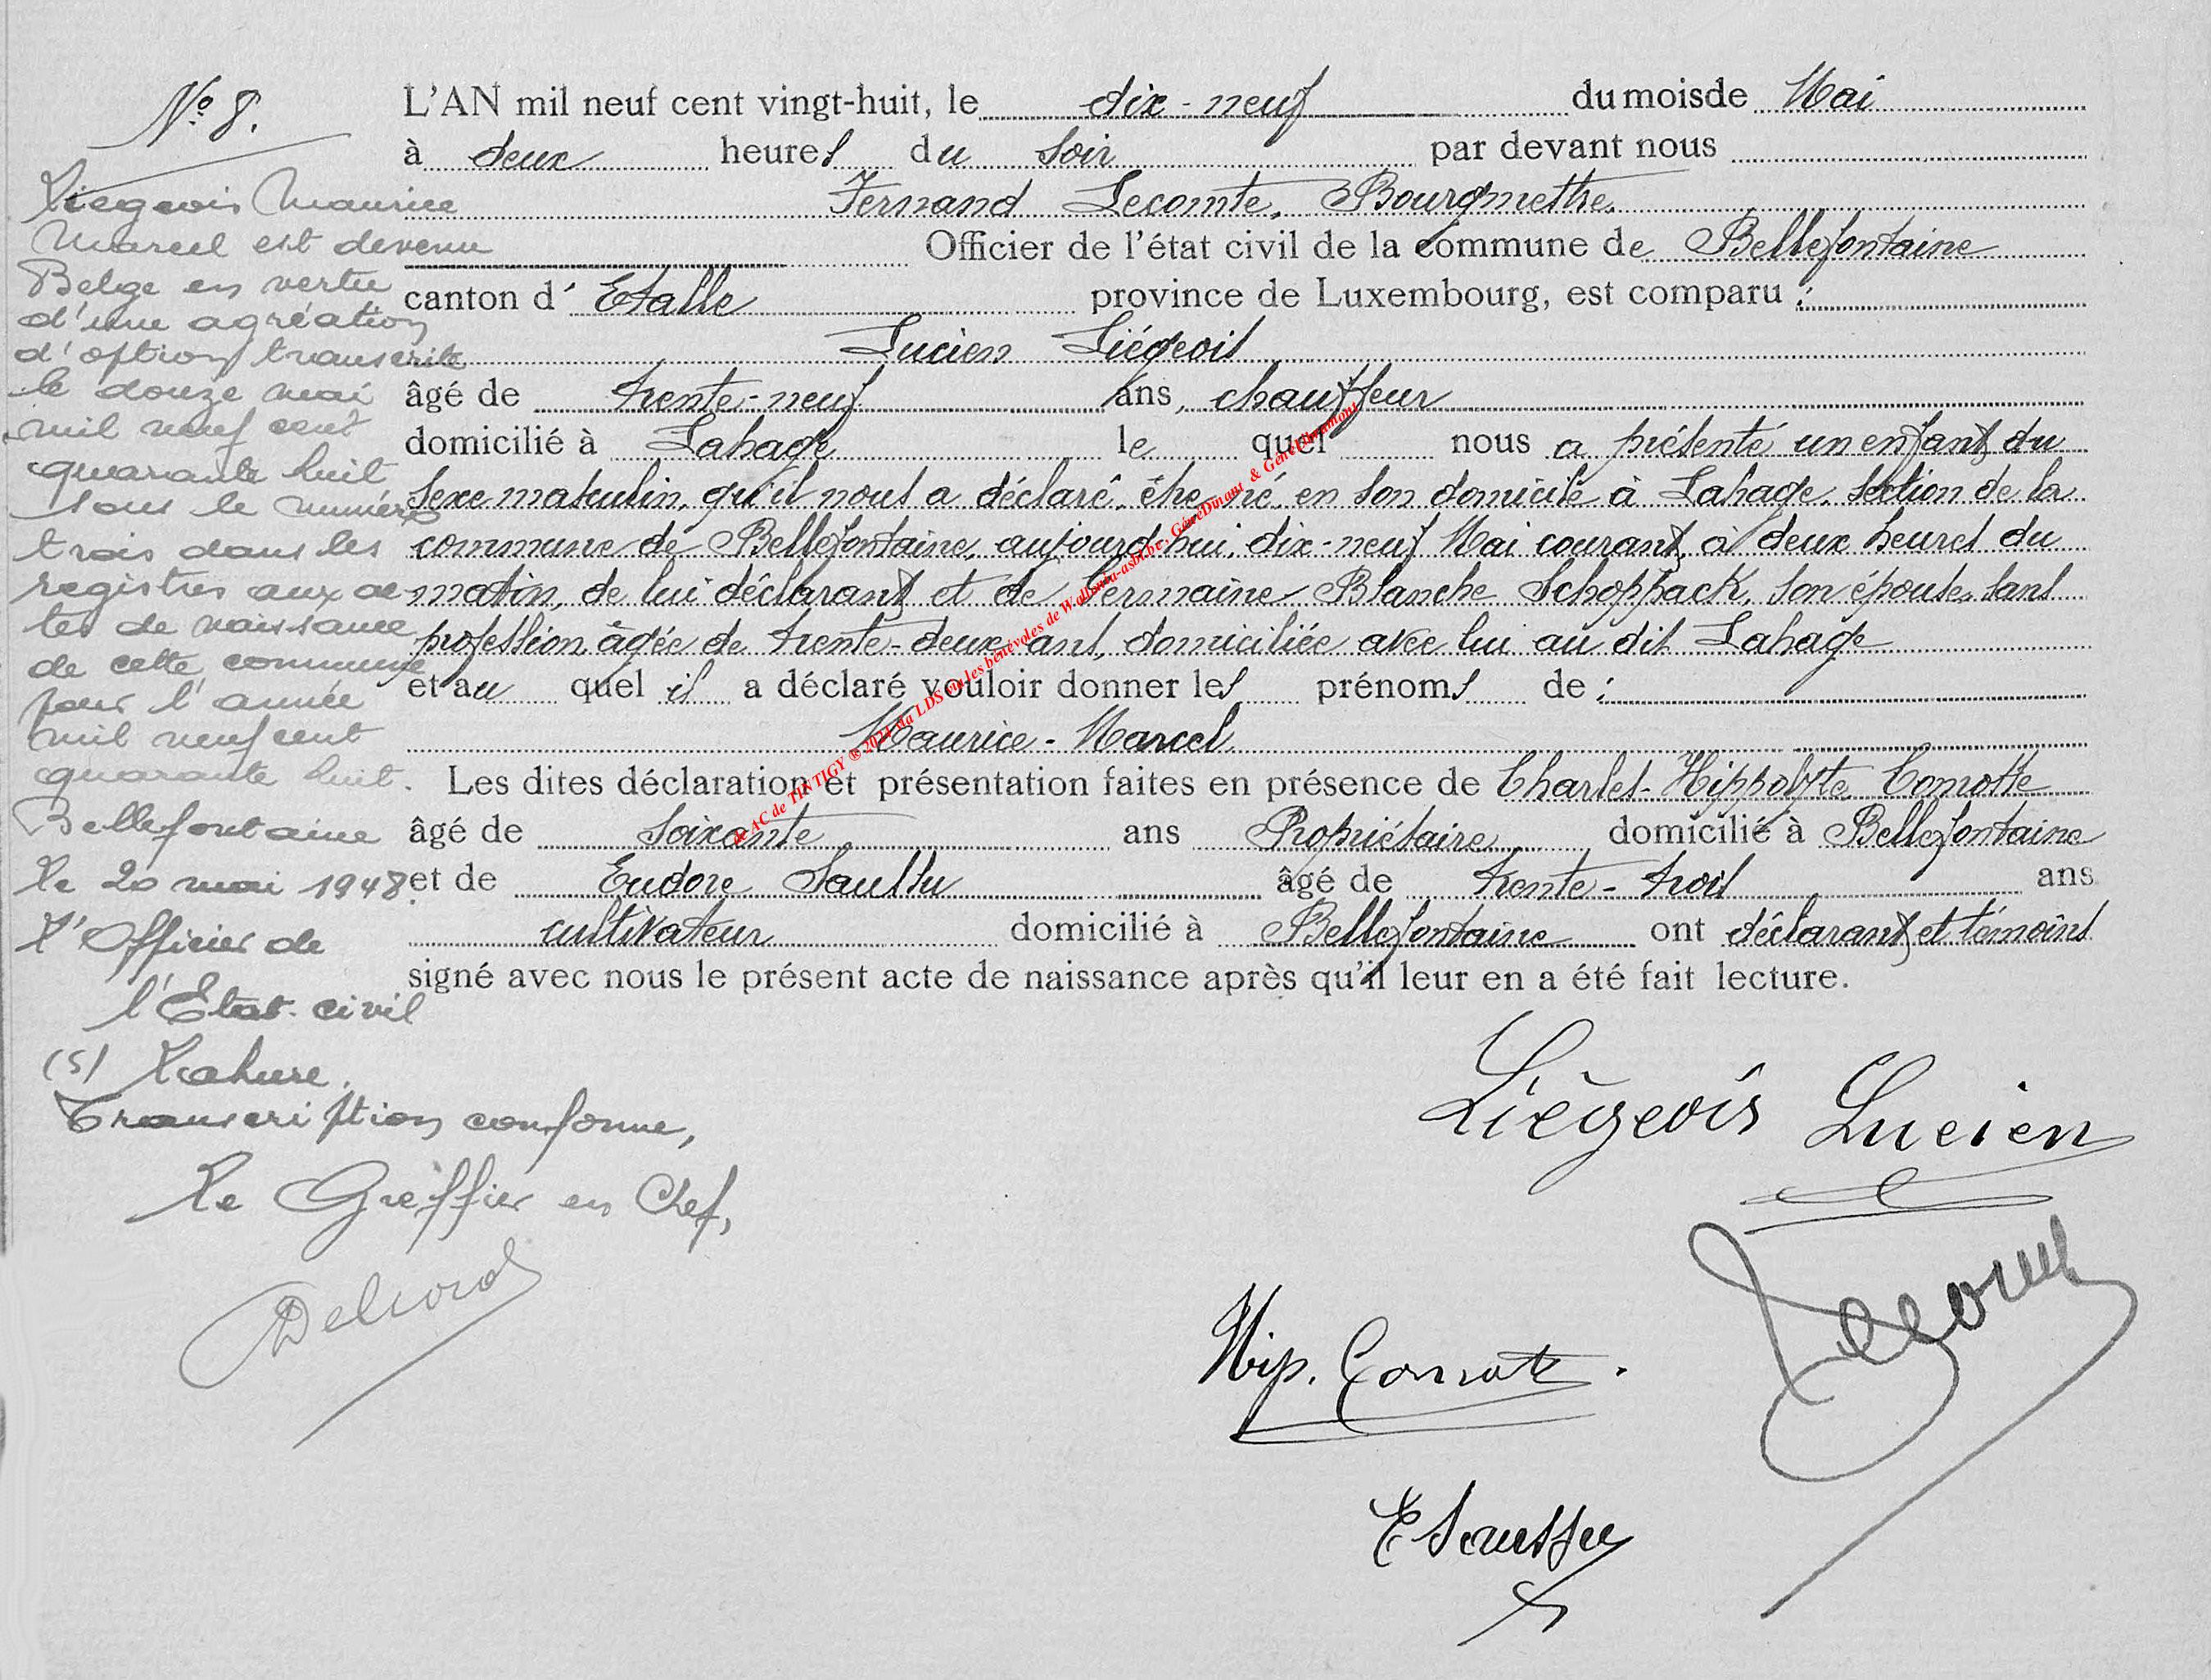 N° 8.
Liégeois Maurice
Marcel est devenu
Belge en vertu
d'une agréation
d'option transcrite
le douze mai
mil neuf cent
quarante huit
sous le numéro
trois dans les
registres aux ac-
tes de naissance
de cette commune
pour l'année
mil neuf cent
quarante huit.
Bellefontaine
le 20 mai 1948.
L'Officier de
l'Etat-civil
(s)
Transcription conforme,
Le Greffier en Chef,
L'AN mil neuf cent vingt-huit, le dix-neuf du mois de Mai
à deux heures du soir par devant nous
Fernand Lecomte, Bourgmestre,
Officier de l'état civil de la commune de Bellefontaine
canton d' Etalle province de Luxembourg, est comparu :
Lucien Liégeois
âgé de trente-neuf ans, chauffeur
domicilié à Lahage le quel nous a présenté un enfant du
sexe masculin, qu'il nous a déclaré être né en son domicile à Lahage, section de la
commune de Bellefontaine, aujourd'hui, dix-neuf Mai courant, à deux heures du
matin, de lui déclarant et de Germaine Blanche Schoppack, son épouse, sans
profession, âgée de trente-deux ans, domiciliée avec lui au dit Lahage
et au quel il a déclaré vouloir donner les prénoms de :
Maurice-Marcel
Les dites déclaration et présentation faites en présence de Charles-Hippolyte Cornotte
âgé de soixante ans Propriétaire domicilié à Bellefontaine
et de Eudore Saussu âgé de trente-trois ans
cultivateur domicilié à Bellefontaine ont déclarant et témoins
signé avec nous le présent acte de naissance après qu'il leur en a été fait lecture.
Liégeois Lucien
Hip. Cornotte.
E Saussu
de AC de TINTIGY ® 2021 via LDS par les bénévoles de Wallonia-asbl.be - GénéDinant &